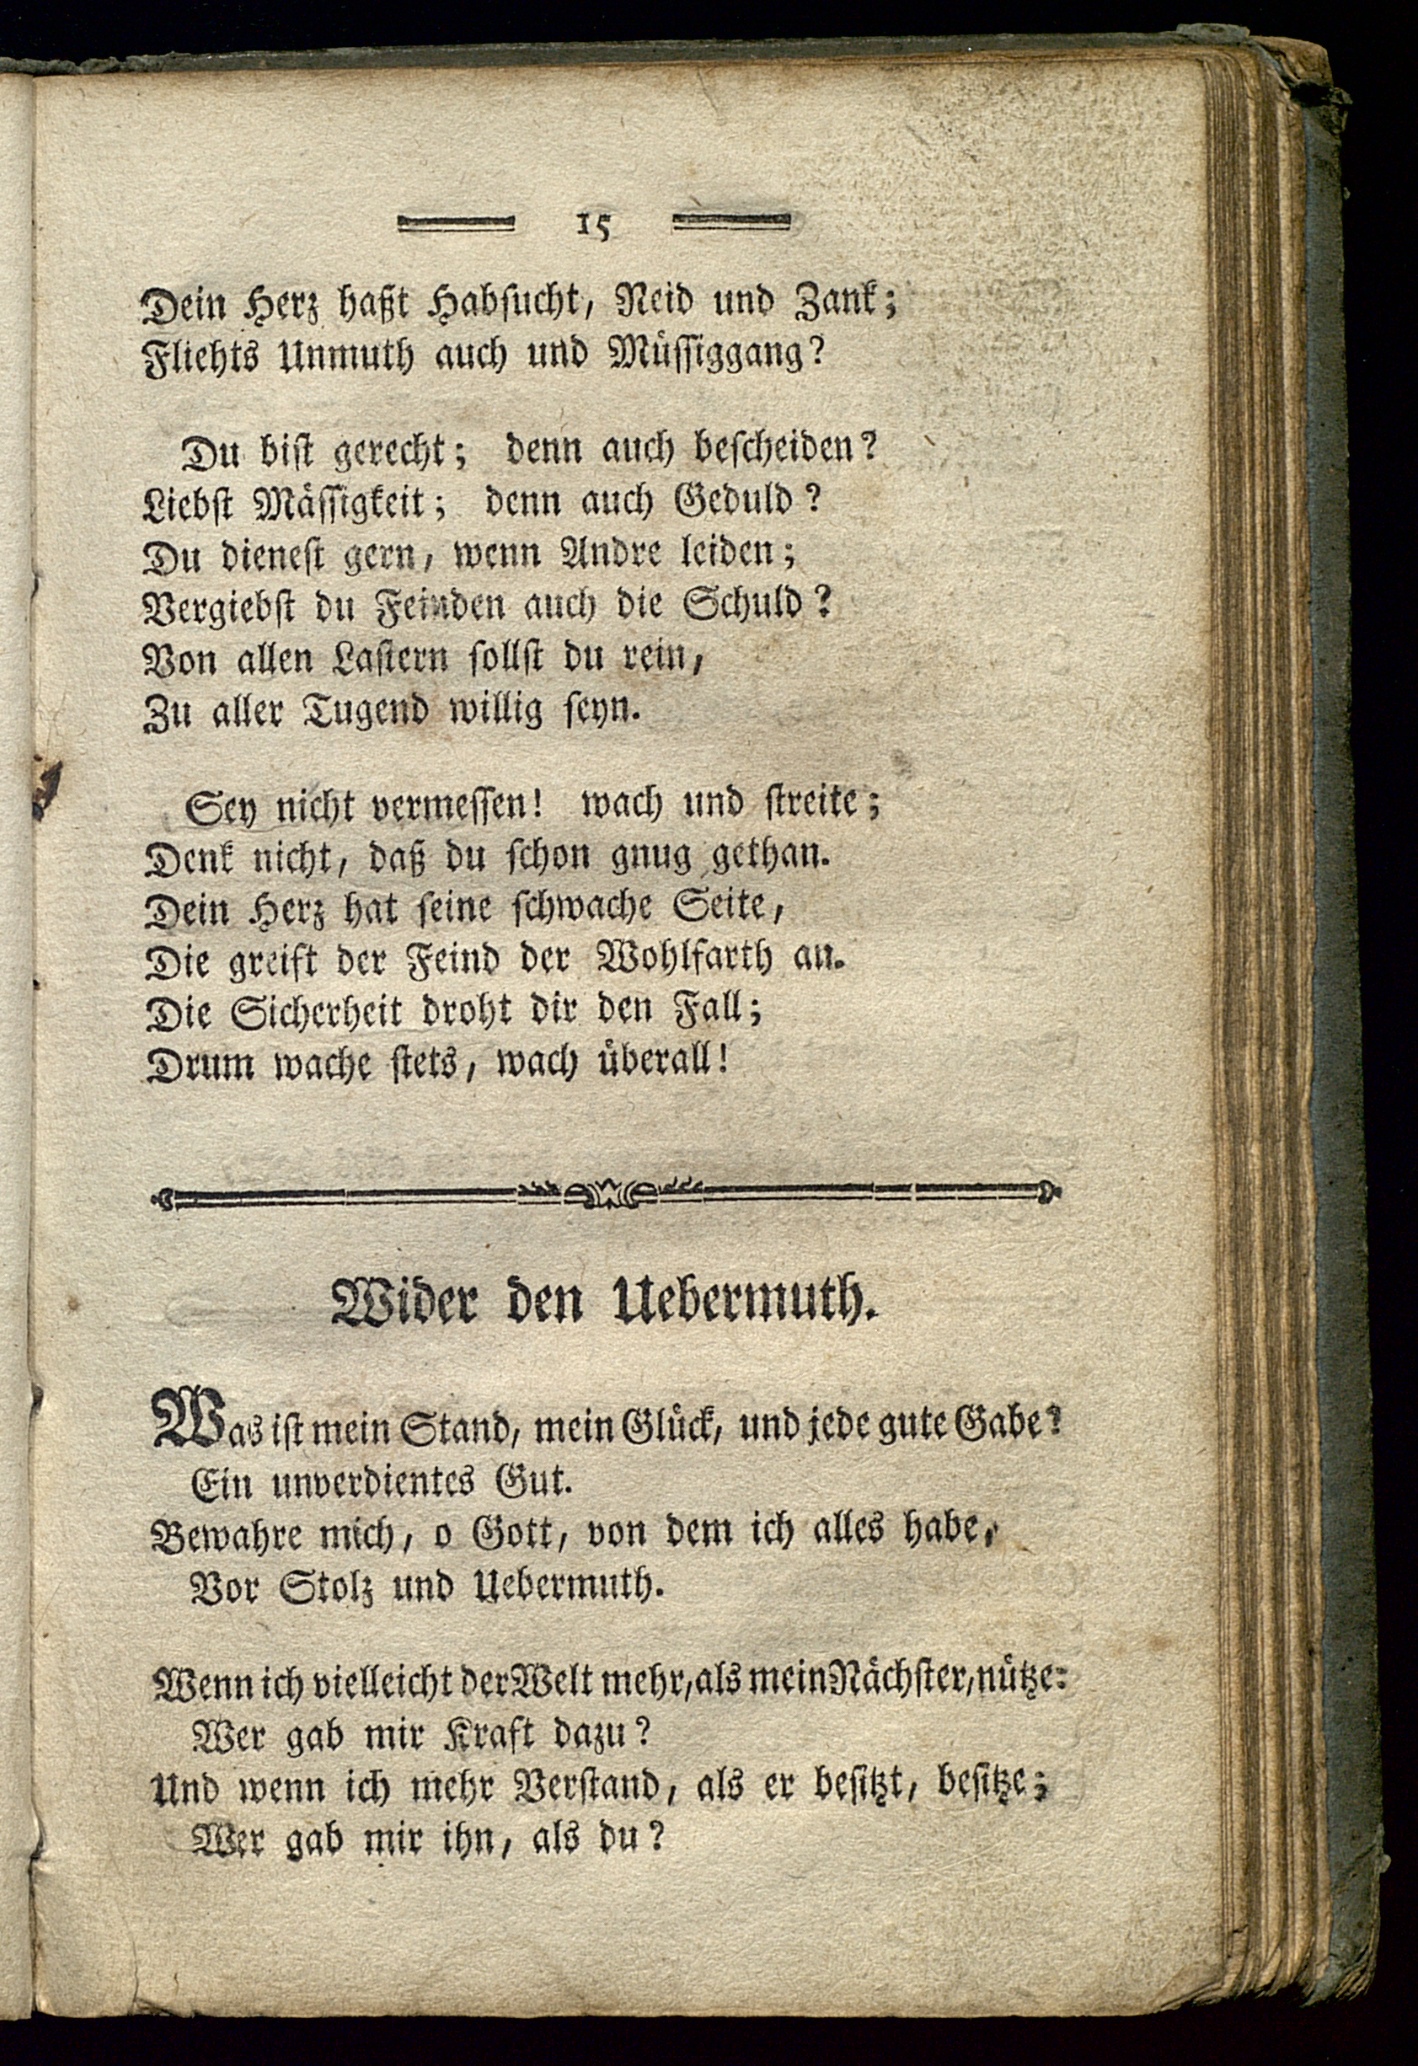 15
Dein Herz haßt Habsucht, Neid und Zank;
Fliehts Unmuth auch und Müssiggang?
Du bist gerecht; denn auch bescheiden?
Liebst Mässigkeit; denn auch Geduld?
Du dienest gern, wenn Andre leiden;
Vergiebst du Feinden auch die Schuld?
Von allen Lastern sollst du rein,
Zu aller Tugend willig seyn.
Sey nicht vermessen! wach und streite;
Denk nicht, daß du schon gnug gethan.
Dein Herz hat seine schwache Seite,
Die greift der Feind der Wohlfarth an.
Die Sicherheit droht dir den Fall;
Drum wache stets, wach überall!
Wider den Uebermuth.
Was ist mein Stand, mein Glück, und jede gute Gabe?
Ein unverdientes Gut.
Bewahre mich, o Gott, von dem ich alles habe,
Vor Stolz und Uebermuth.
Wenn ich vielleicht der Welt mehr, als mein Nächster, nütze:
Wer gab mir Kraft dazu?
Und wenn ich mehr Verstand, als er besitzt, besitze;
Wer gab mir ihn, als du?